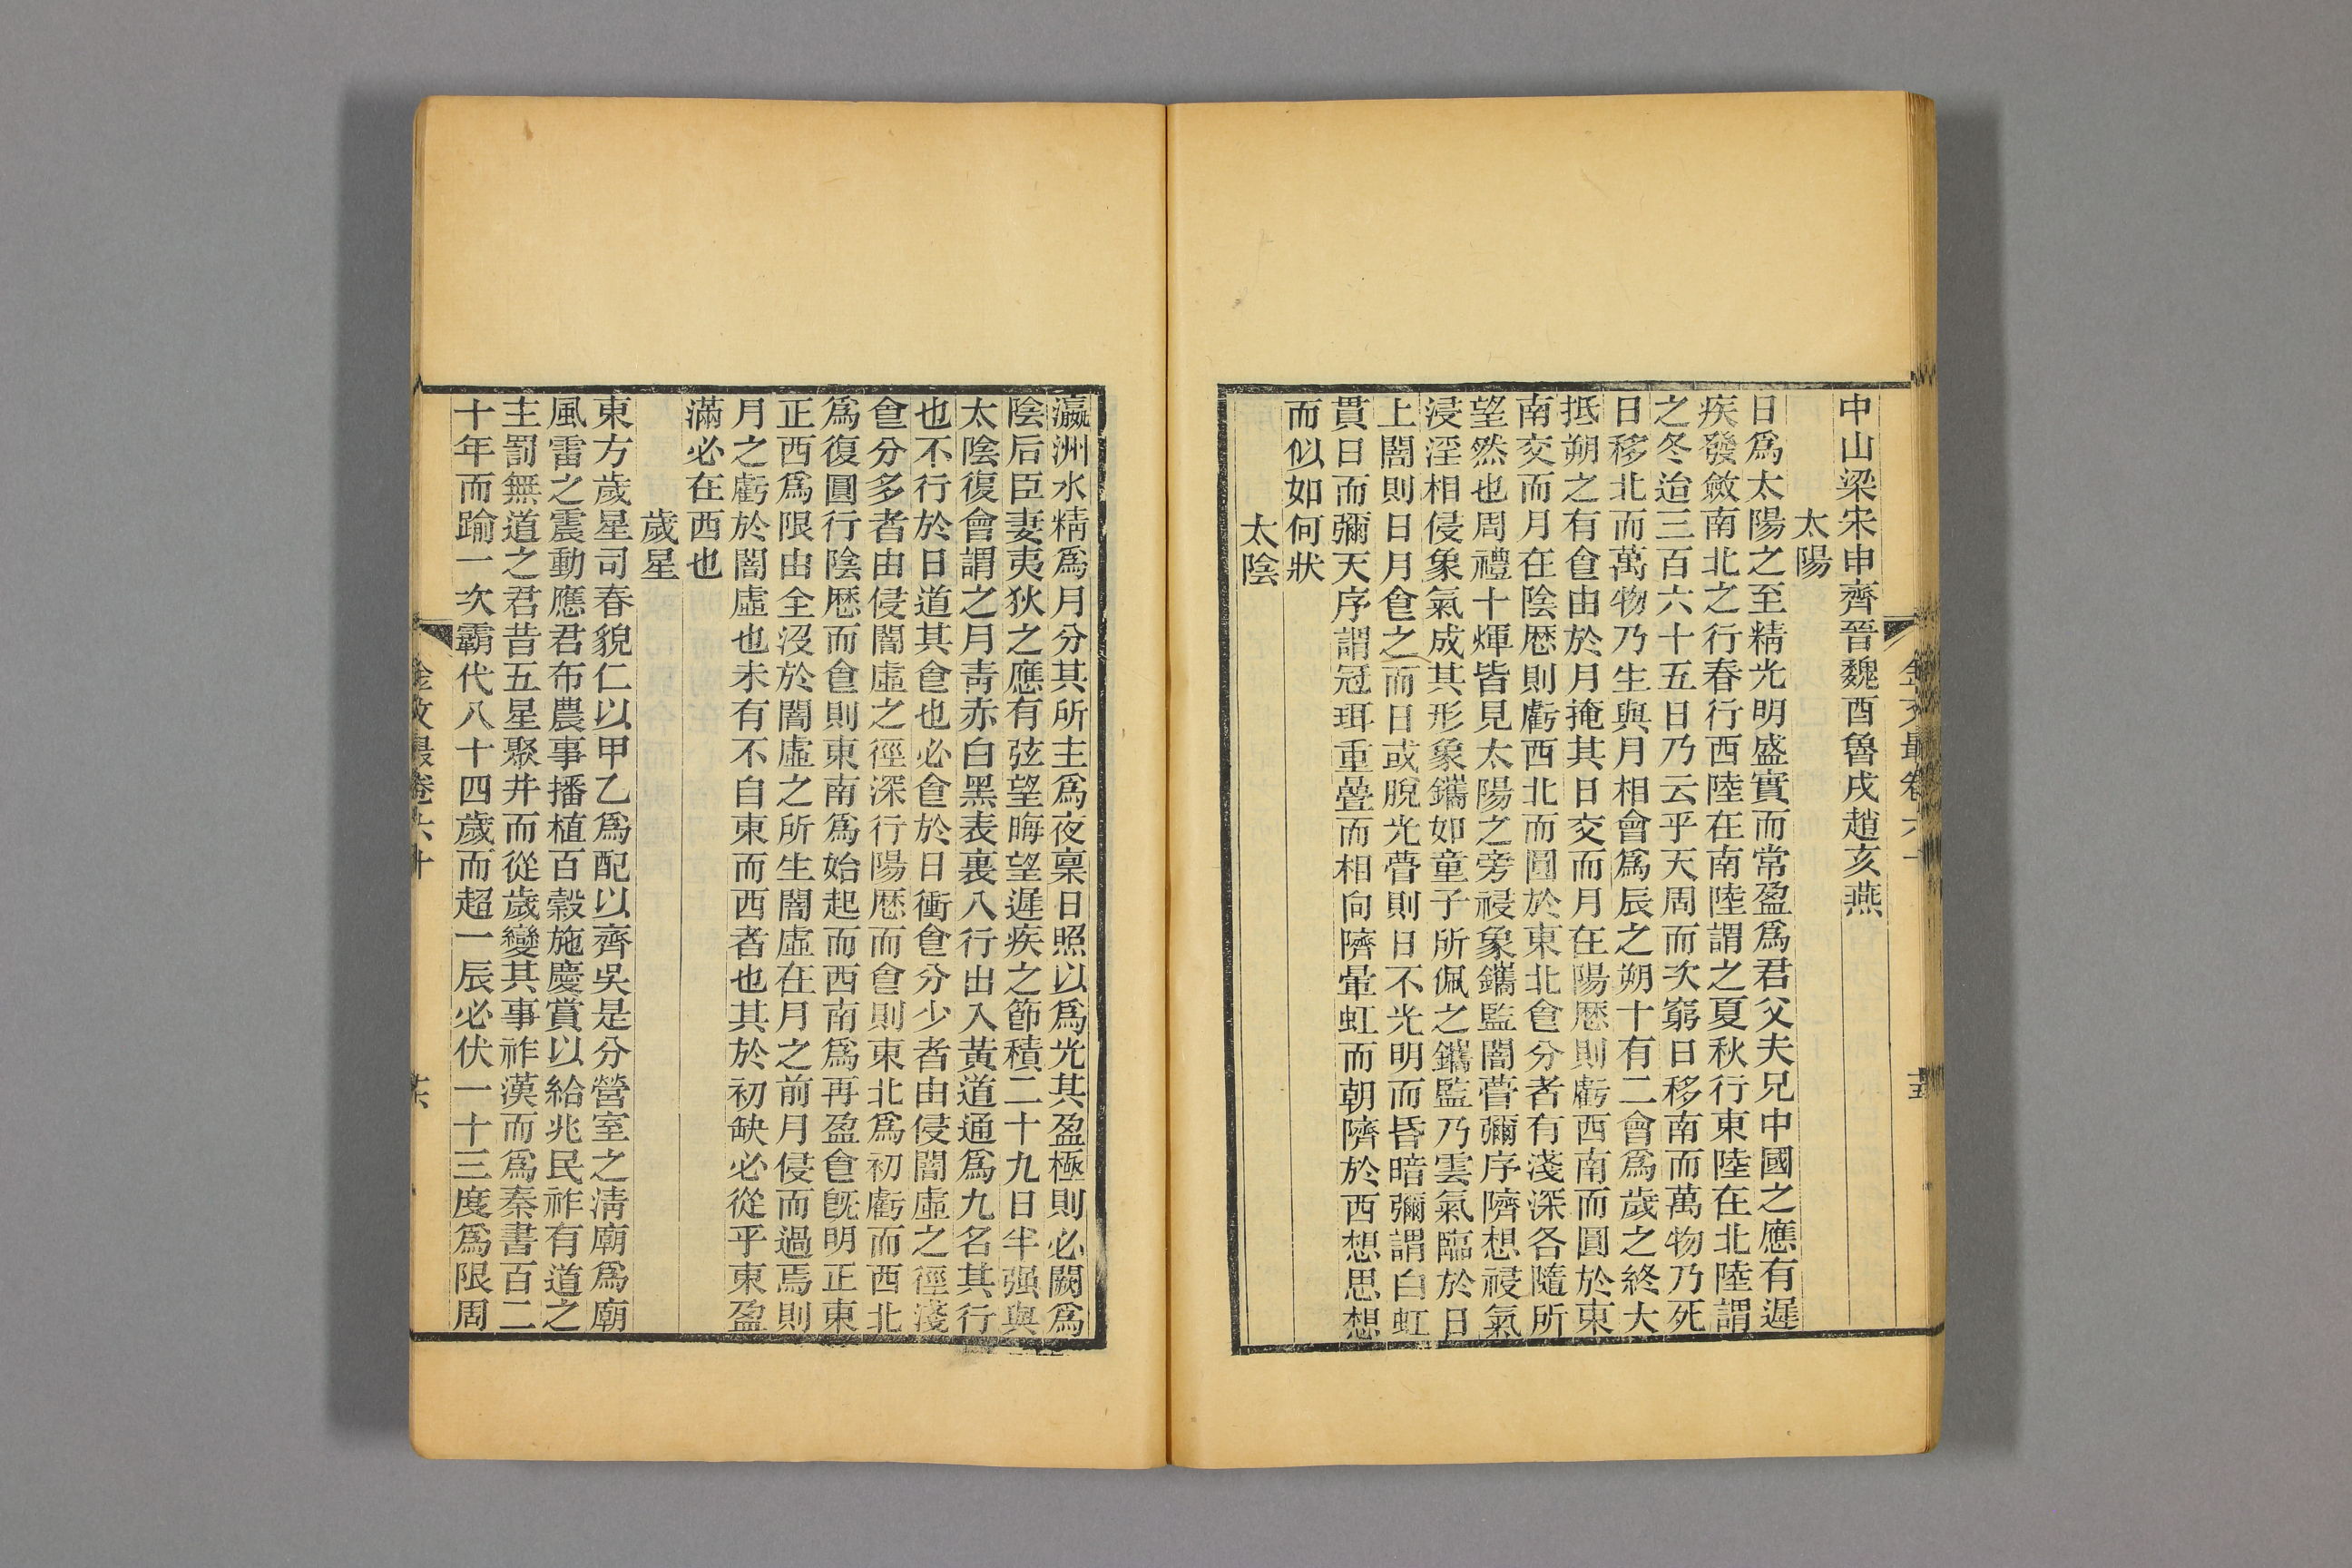 中山梁宋申齊晉魏酉魯戌趙亥燕
太陽
日爲太陽之至精光明盛實而常盈爲君父夫兄中國之應有遲
疾發斂南北之行春行西陸在南陸謂之夏秋行東陸在北陸謂
之冬迨三百六十五日乃云乎天周而次窮日移南而萬物乃死
日移北而萬物乃生與月相會爲辰之朔十有二會爲歲之終大
抵朔之有食由於月掩其日交而月在陽厯則虧西南而圓於東
南交而月在陰厯則虧西北而圓於東北食分者有淺深各隨所
望然也周禮十煇皆見太陽之旁祲象鑴監闇瞢彌序隮想祲氣
浸淫相侵象氣成其形象鑴如童子所佩之鑴監乃雲氣臨於日
上闇則日月食之而日或脫光瞢則日不光明而昏暗彌謂白虹
貫日而彌天序謂冠珥重疊而相向隮暈虹而朝隮於西想思想
而似如何狀
太陰
瀛洲水精爲月分其所主爲夜稟日照以爲光其盈極則必闕爲
陰后臣妻夷狄之應有弦望晦望遲疾之節積二十九日半强與
太陰復會謂之月靑赤白黑表裏八行出入黃道通爲九名其行
也不行於日道其食也必食於日衝食分少者由侵闇虛之徑淺
食分多者由侵闇虛之徑深行陽厯而食則東北爲初虧而西北
爲復圓行陰厯而食則東南爲始起而西南爲再盈食旣明正東
正西爲限由全沒於闇虛之所生闇虛在月之前月侵而過焉則
月之虧於闇虛也未有不自東而西者也其於初缺必從乎東盈
滿必在西也
歲星
東方歲星司春貌仁以甲乙爲配以齊吳是分營室之淸廟爲廟
風雷之震動應君布農事播植百穀施慶賞以給兆民祚有道之
主罰無道之君昔五星聚井而從歲變其事祚漢而爲秦書百二
十年而踰一次霸代八十四歲而超一辰必伏一十三度爲限周
金文最卷六十